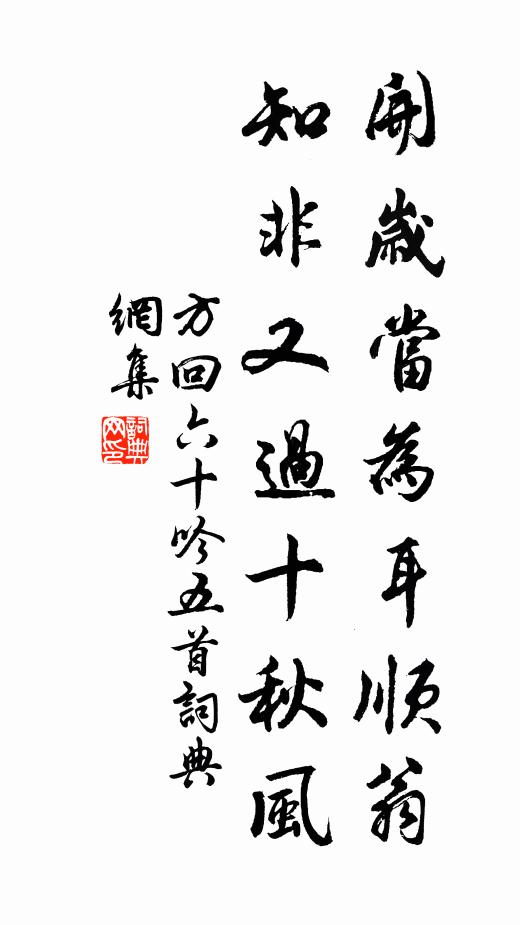 開歲當為耳順翁
知非又過十秋風
方回六十吟五首詞典
網集
詞典網印